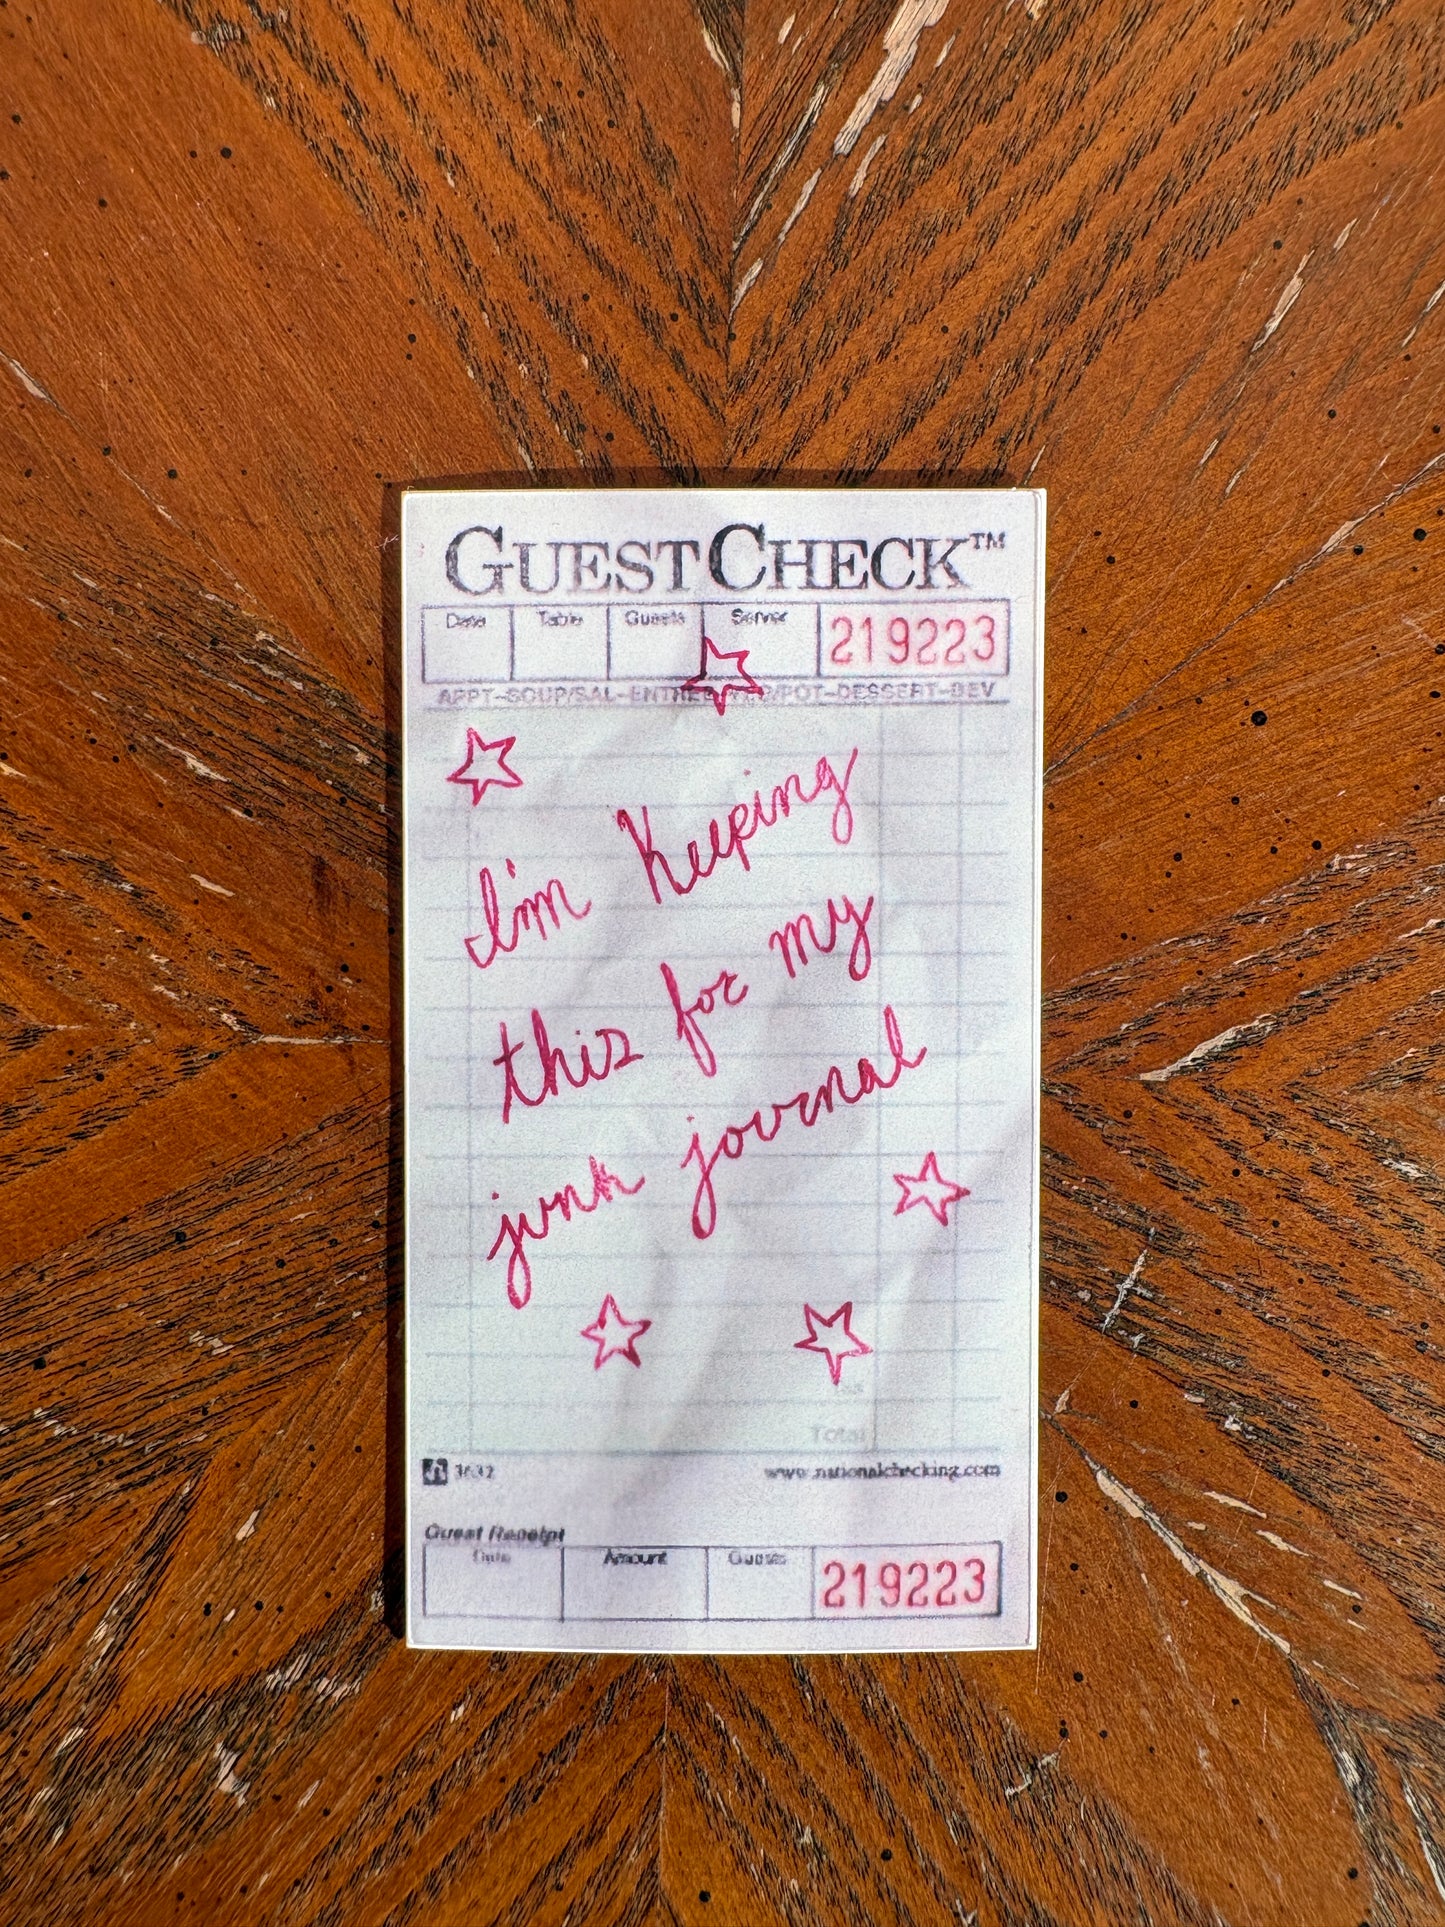 GUESTCHECK™
Date Table Guests Server 219223
APPT-SOUP/SAL-ENTREE-VEG/POT-DESSERT-BEV
I'm Keeping
this for my
junk journal
Tax
Total
3632 www.nationalchecking.com
Guest Receipt
Date Amount Guests 219223